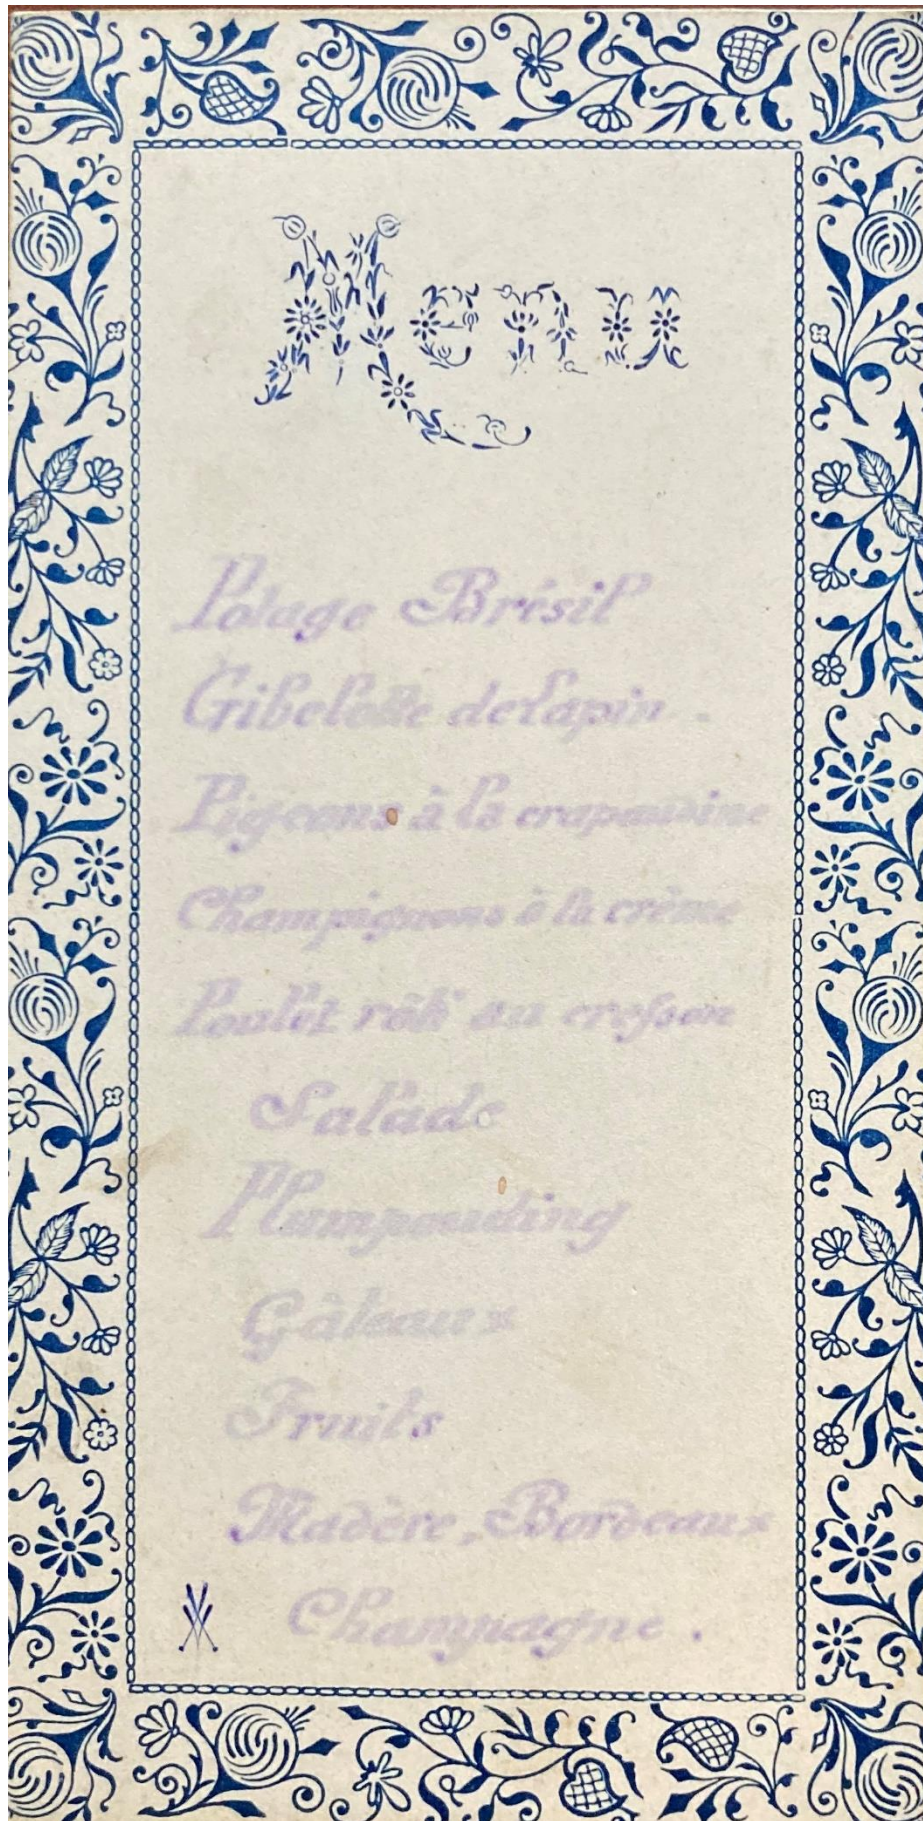 Menu
Potage Brésil
Gibelotte de lapin
Pigeons à la crapaudine
Champignons à la crème
Poulet rôti au cresson
Salade
Plumpouding
Gâteaux
Fruits
Madère, Bordeaux
Champagne.